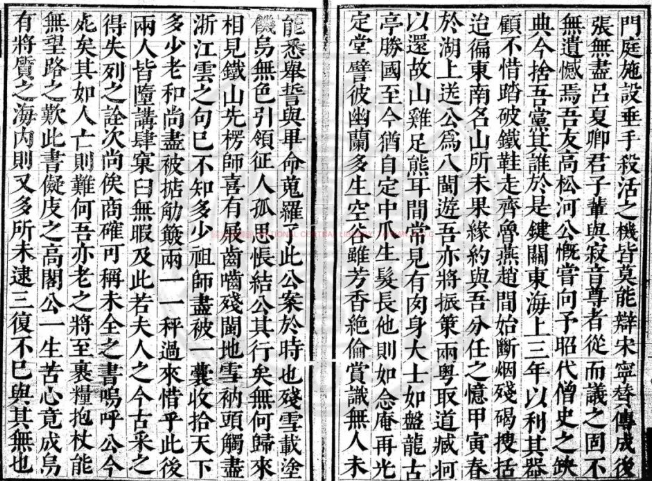 門庭施設垂手殺活之機皆莫能辯宋寧替傳成後
張無盡呂夏卿君子輩與寂音尊者從而議之固不
無遺憾焉吾友高松河公慨嘗向予昭代僧史之缺
典今捨吾黨其誰於是鍵關東海上三年以利其器
顧不惜踏破鐵鞋走齊魯燕趙間始斷烟殘碣搜括
迨徧東南名山所未果緣約與吾分任之憶甲寅春
於湖上送公爲八閩遊吾亦將振策兩粤取道臧牁
以還故山雞足熊耳間常見有肉身大士如盤龍古
亭勝國至今猶自定中爪生髮長他則如念庵再光
定堂譬彼幽蘭多生空谷雖芳香絶倫賞識無人未
能悉舉誓與畢命蒐羅了此公案於時也殘雪載塗
饑鳥無色引領征人孤思悵結公其行矣無何歸來
相見鐵山先楞師喜有展齒嚙殘閩地雪衲頭觸盡
浙江雲之句已不知多少祖師盡被一囊收拾天下
多少老和尚盡被掂觔簸兩一一秤過來惜乎此後
兩人皆墮講肆窠臼無暇及此若夫人之今古采之
得失列之詮次尚俟商確可稱未全之書嗚呼公今
死矣其如人亡則難何吾亦老之將至裹糧抱杖能
無望路之歎此書儗庋之高閣公一生苦心竟成烏
有將質之海內則又多所未逮三復不已與其無也